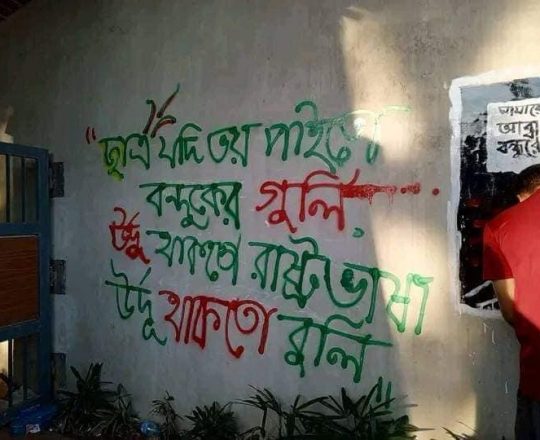 "ছাত্র যদি ভয় পাইতো
বন্দুকের গুলি
উর্দু থাকতো রাষ্ট্রভাষা
উর্দূ থাকতো বুলি"
বন্দুকে